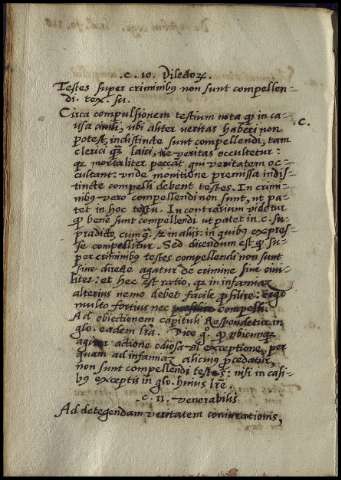 c. 10. Dilectorꝝ
Testes super criminibꝰ non sunt compellen-
di. tex. sci.
Circa compulsionem testium nota ꝙ in ca- C.
usa ciuili, ubi aliter ueritas haberi non
potest, indistincte sunt compellendi, tam
clerici ꝗ̃ laici, ne ueritas occultetur:
ꝗa mortaliter peccãt qui ueritatem oc-
cultant: unde monitione premissa indis-
tincte compelli debent testes. In crimi-
nibꝰ uero compellendi non sunt, ut pa-
tet in hoc textu. In contrarium uidetur
ꝙ bene sunt compellendi ut patet in c. su-
pradicto, cum ꝗ. et in alijs: in quibꝰ expres-
se compellitur. Sed dicendum est ꝙ su-
per criminibꝰ testes compellendi non sunt
siue directe agatur de crimine siue ciui-
liter: et hec est ratio, ꝗa in infamiam
alterius nemo debet facile ꝓsilire: ergo
multo fortius nec compelli.
Ad obiectionem capituli Respondetur in
glo. eadem lr̃a. Dice ꝙ ubicunꝗ
agitur actione odiosa uel exceptione, per
quam ad infamiam alicuius ꝓcedatur,
non sunt compellendi testes: nisi in casi-
bꝰ exceptis in glo. huius lr̃e.
c. 11. uenerabilis
Ad detegendam ueritatem coniurationis,